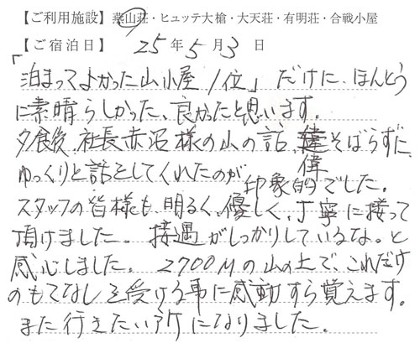 【ご利用施設】燕山荘・ヒュッテ大槍・大天荘・有明荘・合戦小屋
【ご宿泊日】25年5月3日
「泊まってよかった山小屋1位」だけに、ほんとう
に素晴らしかった、良かったと思います。
夕食後、社長赤沼様の山の話、偉そばらずに
ゆっくりと話をしてくれたのが印象的でした。
スタッフの皆様も、明るく、優しく、丁寧に接って
頂けました。接遇がしっかりしているな。と
感心しました。2700Mの山の上で、これだけ
のもてなしを受ける事に感動すら覚えます。
また行きたい所になりました。